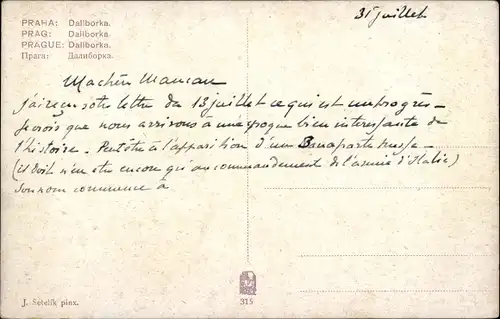 PRAHA: Daliborka.
PRAG: Daliborka.
PRAGUE: Daliborka.
Прага: Далиборка.
31 juillet
Ma chère Maman
j'ai reçu votre lettre du 13 juillet ce qui est un progrès -
Je crois que nous arrivons à une époque bien intéressante de
l'histoire. Peut être à l'apparition d'un Bonaparte russe -
(Il doit n'en être encore qu'au commandement de l'armée d'Italie)
Son nom commence à
J. Šetelík pinx.
315